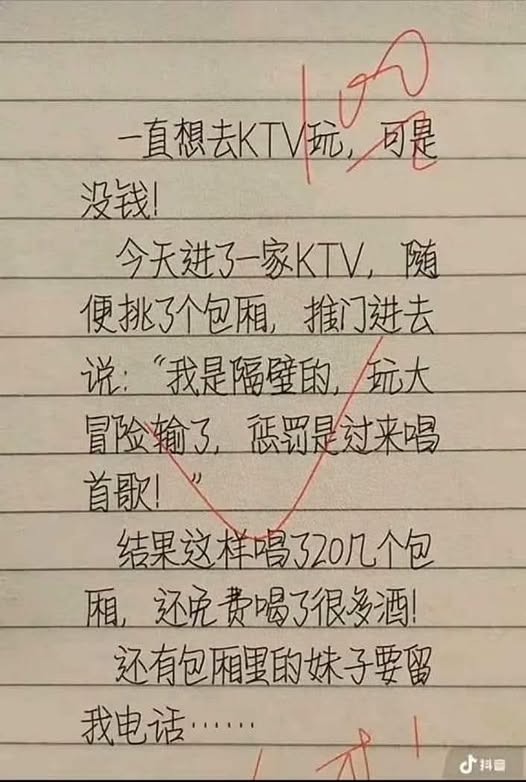 100
一直想去KTV玩，可是
没钱！
今天进了一家KTV，随
便挑了个包厢，推门进去
说：“我是隔壁的，玩大
冒险输了，惩罚是过来唱
首歌！”
结果这样唱了20几个包
厢，还免费喝了很多酒！
还有包厢里的妹子要留
我电话……
抖音